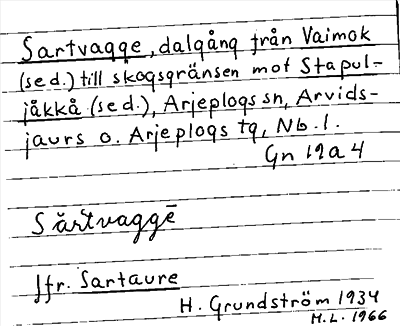 Sartvagge, dalgång från Vaimok
(se d.) till skogsgränsen mot Stapul-
jåkkå (se d.), Arjeplogs sn, Arvids-
jaurs o. Arjeplogs tg, Nb. l.
Gn 19a4
Sărtvaggē
Jfr. Sartaure
H. Grundström 1934
H.L. 1966